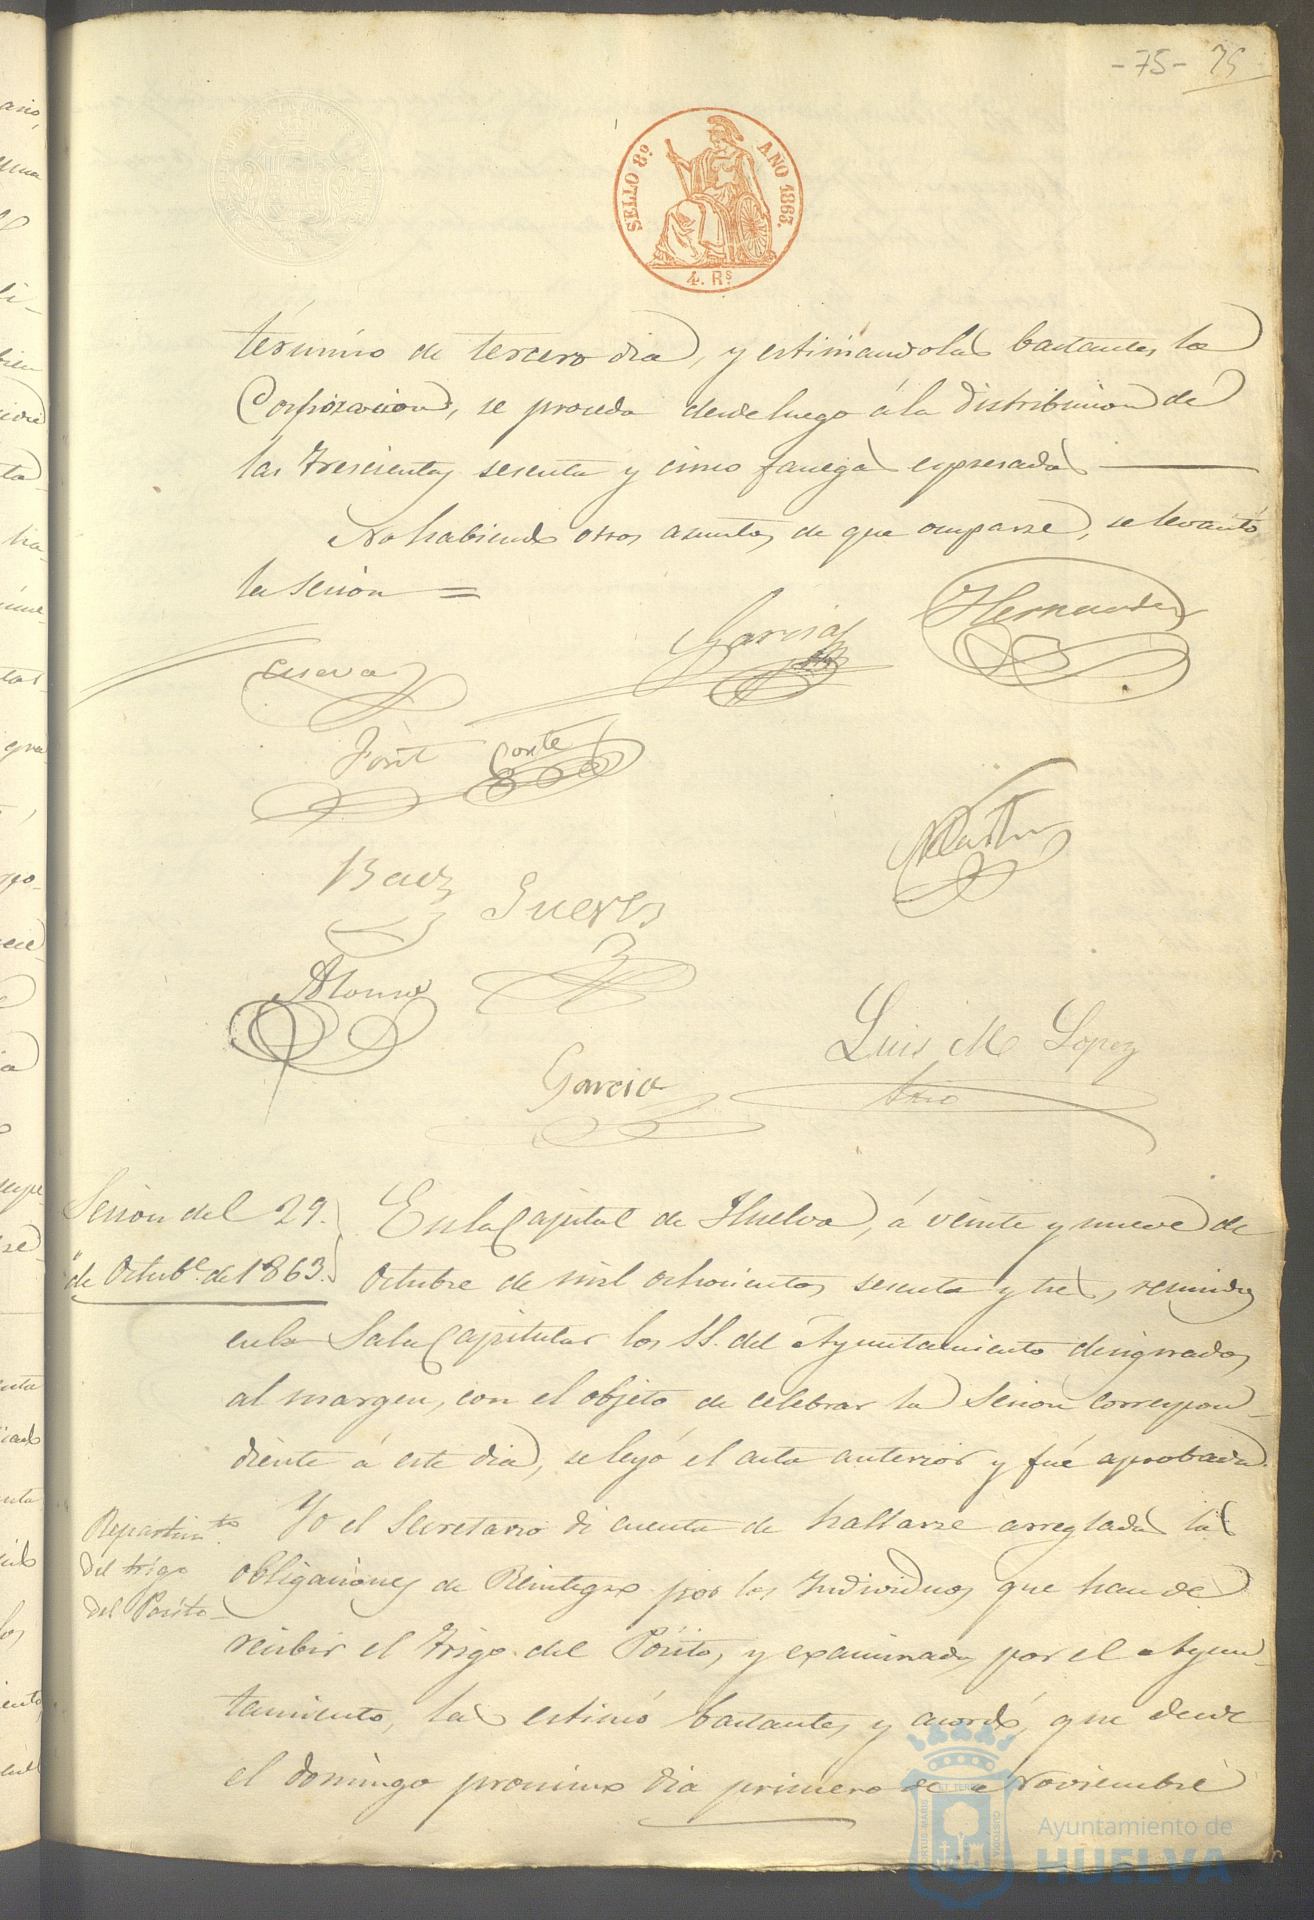 -75- 75
SELLO 8º AÑO 1863.
4. Rs
término de tercero dia, y estimandolas bastantes la
Corporacion, se proceda desde luego á la distribucion de
las trescientas sesenta y cinco fanegas espresadas
No habiendo otros asuntos de que ocuparse, se levantó
la sesion =
Garcia
Hernandez
Cueva
Font
Conte
Baez
Alonso
Luis M Lopez
Srio
Garcia
Sesion del 29.
de Octubre. de 1863.
En la Capital de Huelva, á veinte y nueve de
Octubre de mil ochocientos sesenta y tres, reunidos
en la Sala Capitular los SS. del Ayuntamiento designados
al margen, con el objeto de celebrar la Sesion correspon-
diente á este dia, se leyó el acta anterior y fué aprobada.
Repartimto
del trigo
del Pósito
Yo el Secretario di cuenta de hallarse arregladas las
obligaciones de Reintegro por los Individuos que han de
recibir el trigo del Pósito, y examinadas por el Ayun-
tamiento, las estimó bastantes y acordó, que desde
el domingo procsimo dia primero de Noviembre
Ayuntamiento de
HUELVA